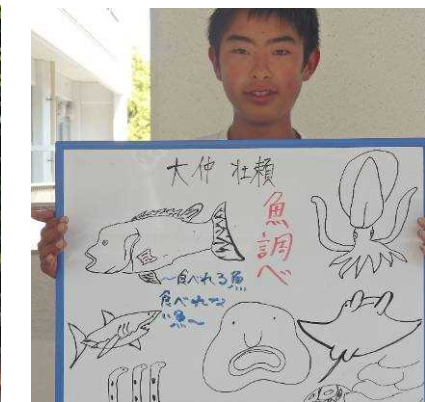 大仲 壮頼
魚調べ
〜食べれる魚
食べれな
い魚〜